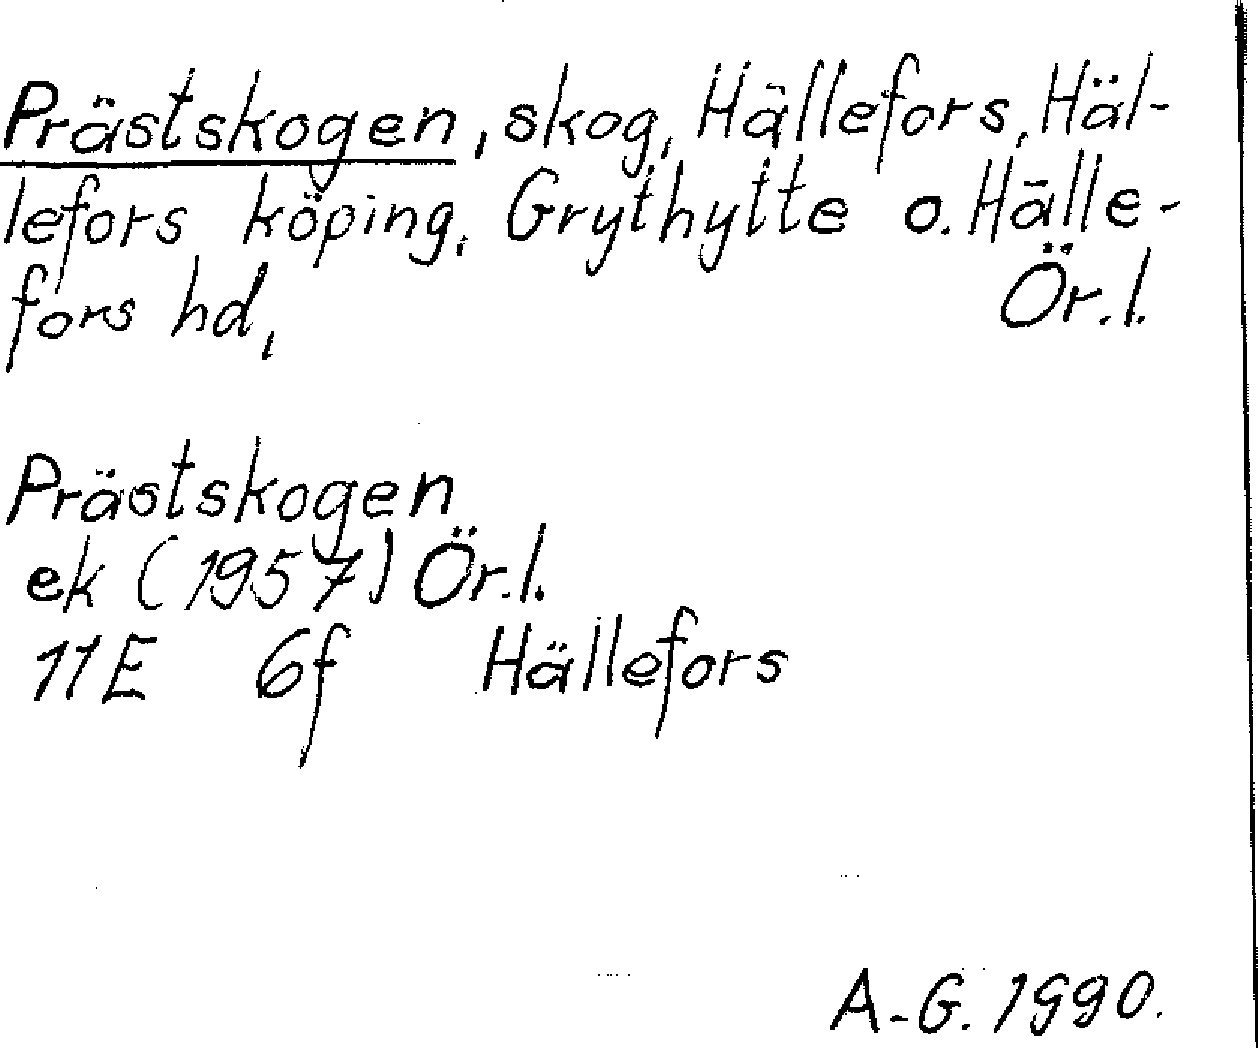 Prästskogen, skog, Hällefors, Häl-
lefors köping, Grythytte o. Hälle-
fors hd, Ör.l.
Prästskogen
ek (1957) Ör.l.
11E 6f Hällefors
A-G. 1990.